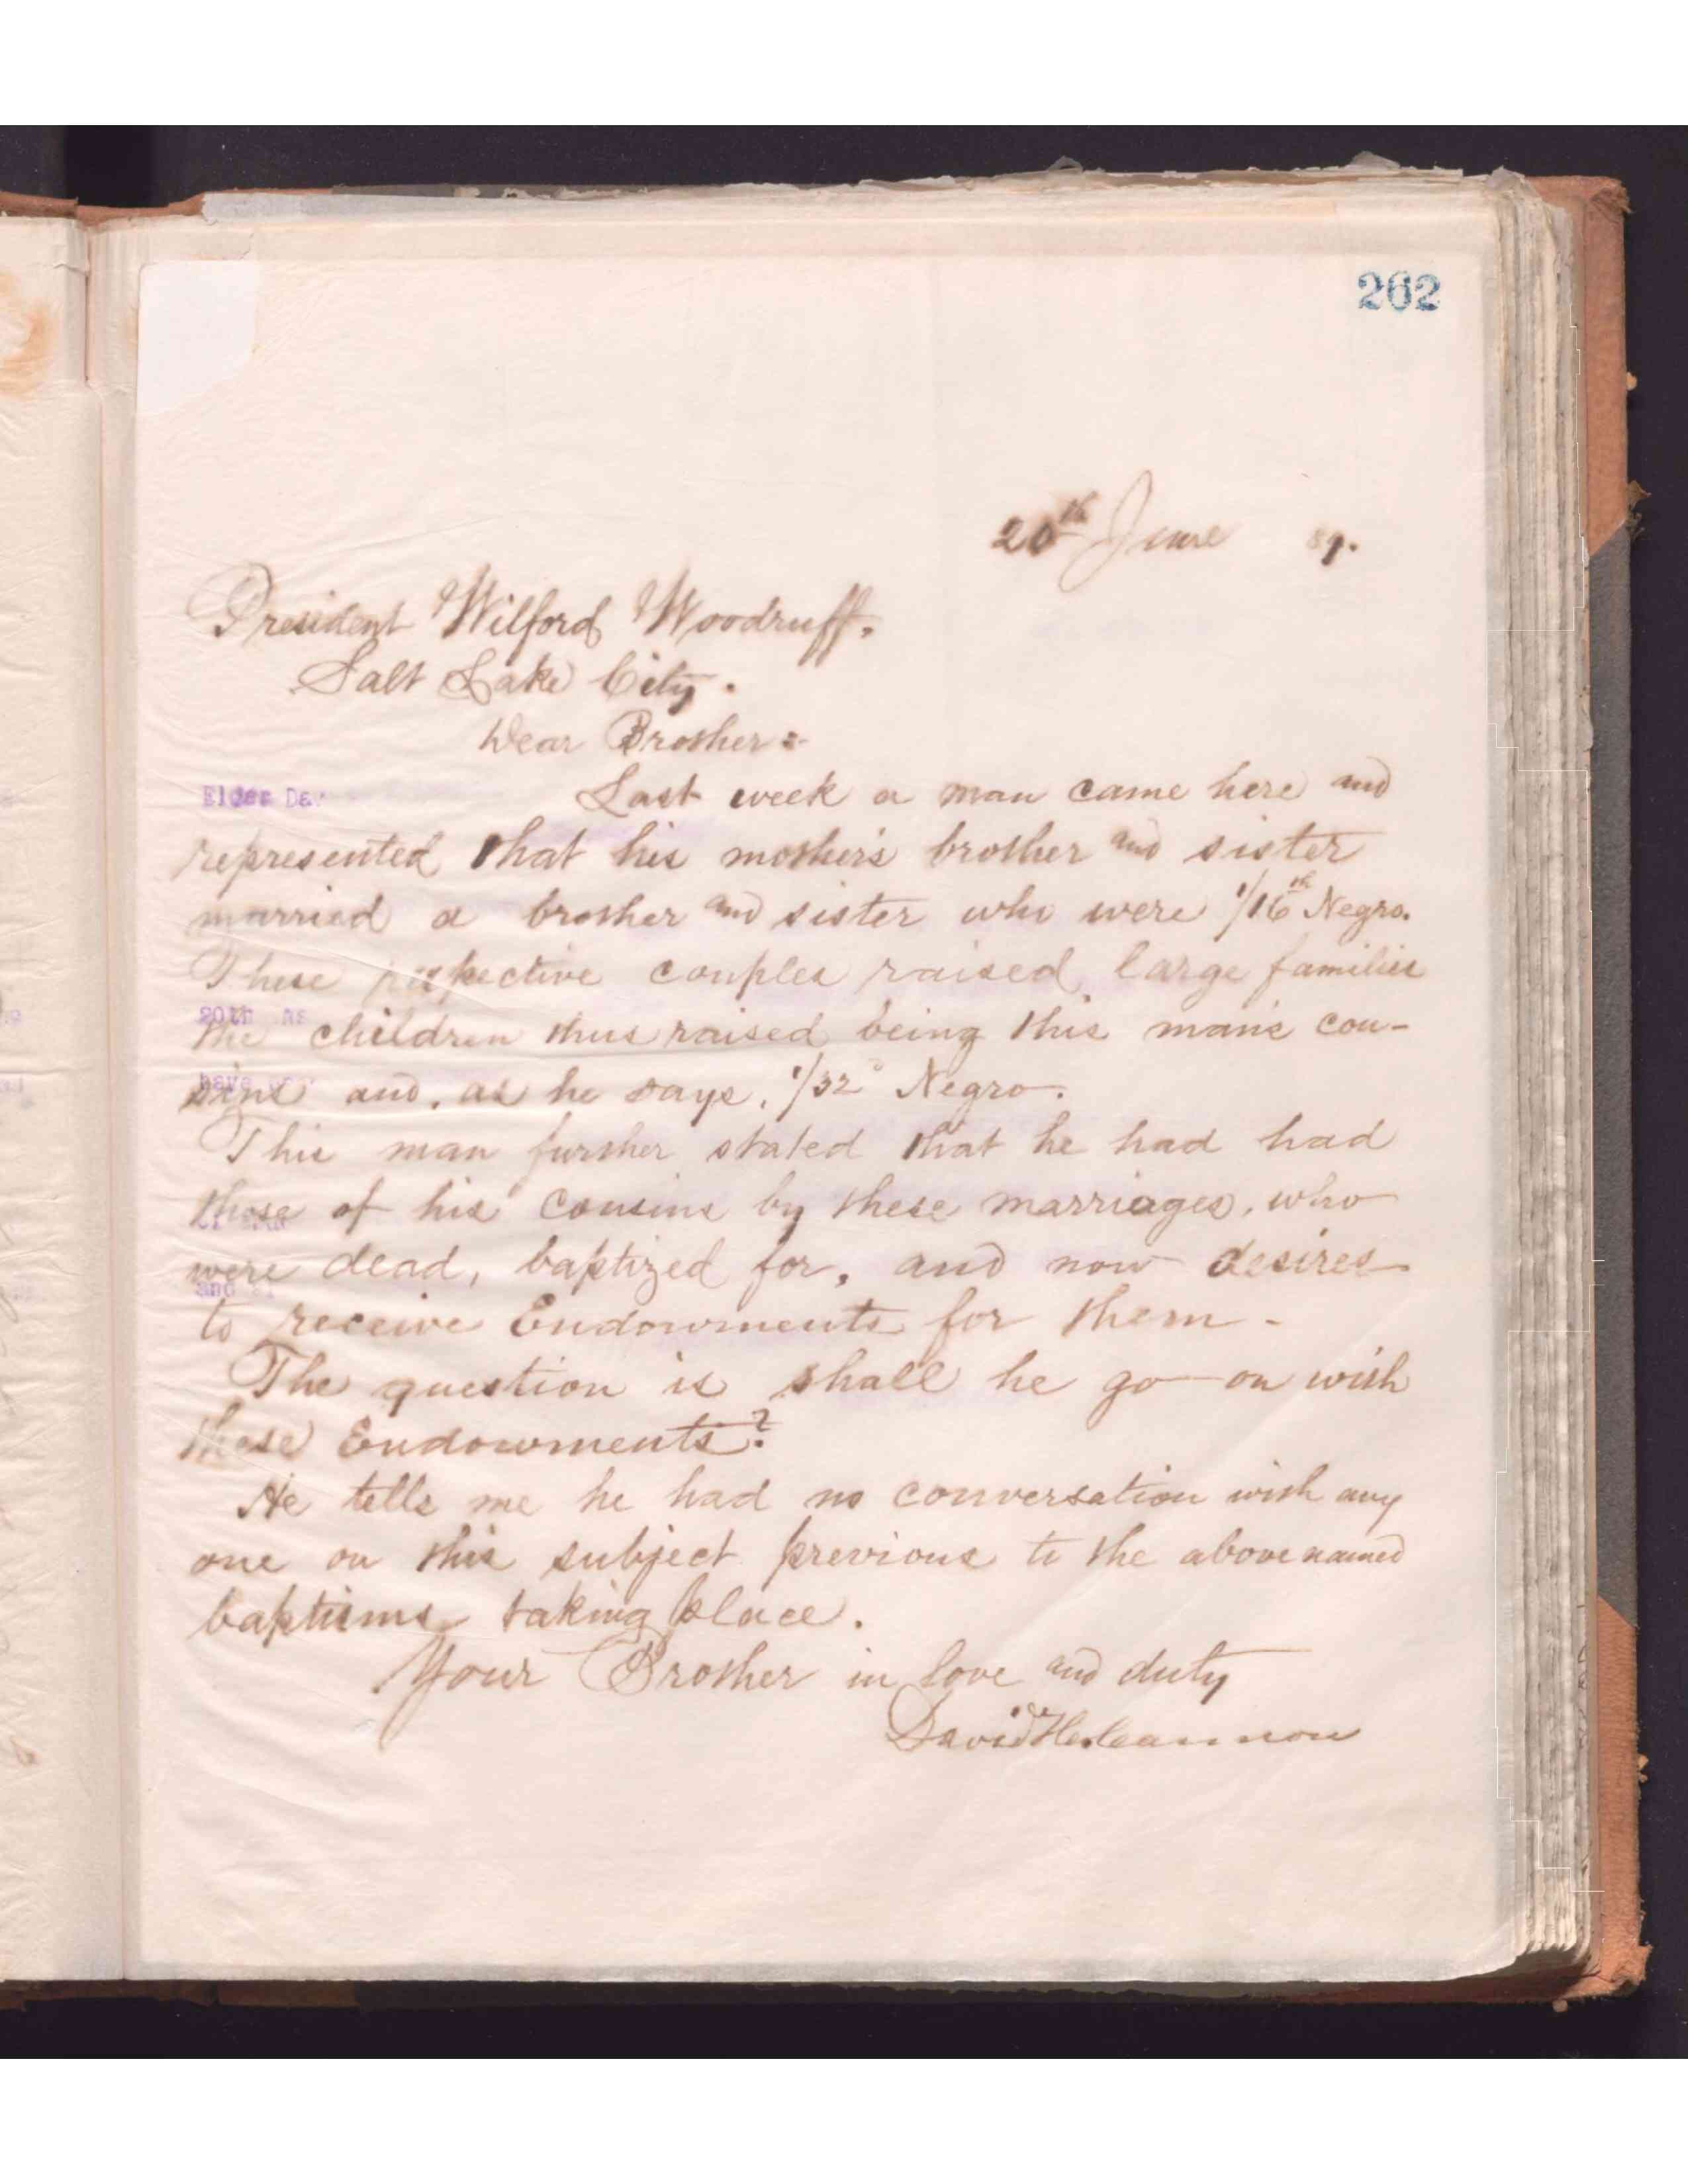 262
20th June 89.
President Wilford Woodruff.
Salt Lake City.
Dear Brother:-
Elder Dav
Last week a man came here and
represented that his mother's brother and sister
married a brother and sister who were 1/16th Negro.
These respective couples raised large families
20th
the children thus raised being this man's cou-
have
sins and, as he says, 1/32d Negro.
This man further stated that he had had
those of his cousins by these marriages, who
were dead, baptized for, and now desires
and
to receive Endowments for them -
The question is shall he go on with
these Endowments?
He tells me he had no conversation with any
one on this subject previous to the above named
baptisms taking place.
Your Brother in love and duty
David H. Cannon